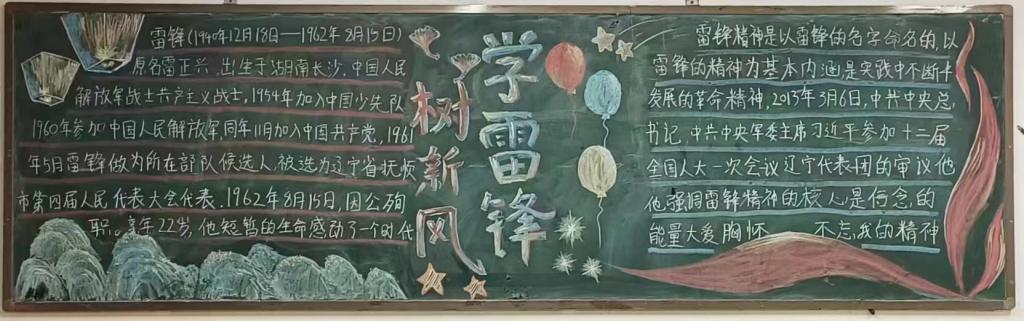 雷锋(1940年12月18日—1962年8月15日)
原名雷正兴,出生于湖南长沙,中国人民
解放军战士共产主义战士,1954年加入中国少先队
1960年参加中国人民解放军同年11月加入中国共产党,1961
年5月雷锋做为所在部队候选人被选为辽宁省抚顺
市第四届人民代表大会代表.1962年8月15日,因公殉
职.享年22岁,他短暂的生命感动了一个时代
树新风
学雷锋
雷锋精神是以雷锋的名字命名的,以
雷锋的精神为基本内涵是实践中不断丰
发展的革命精神,2013年3月6日,中共中央总
书记,中共中央军委主席习近平参加十二届
全国人大一次会议辽宁代表团的审议他
他强调雷锋精神的核心是信念的
能量大爱胸怀 不忘我的精神